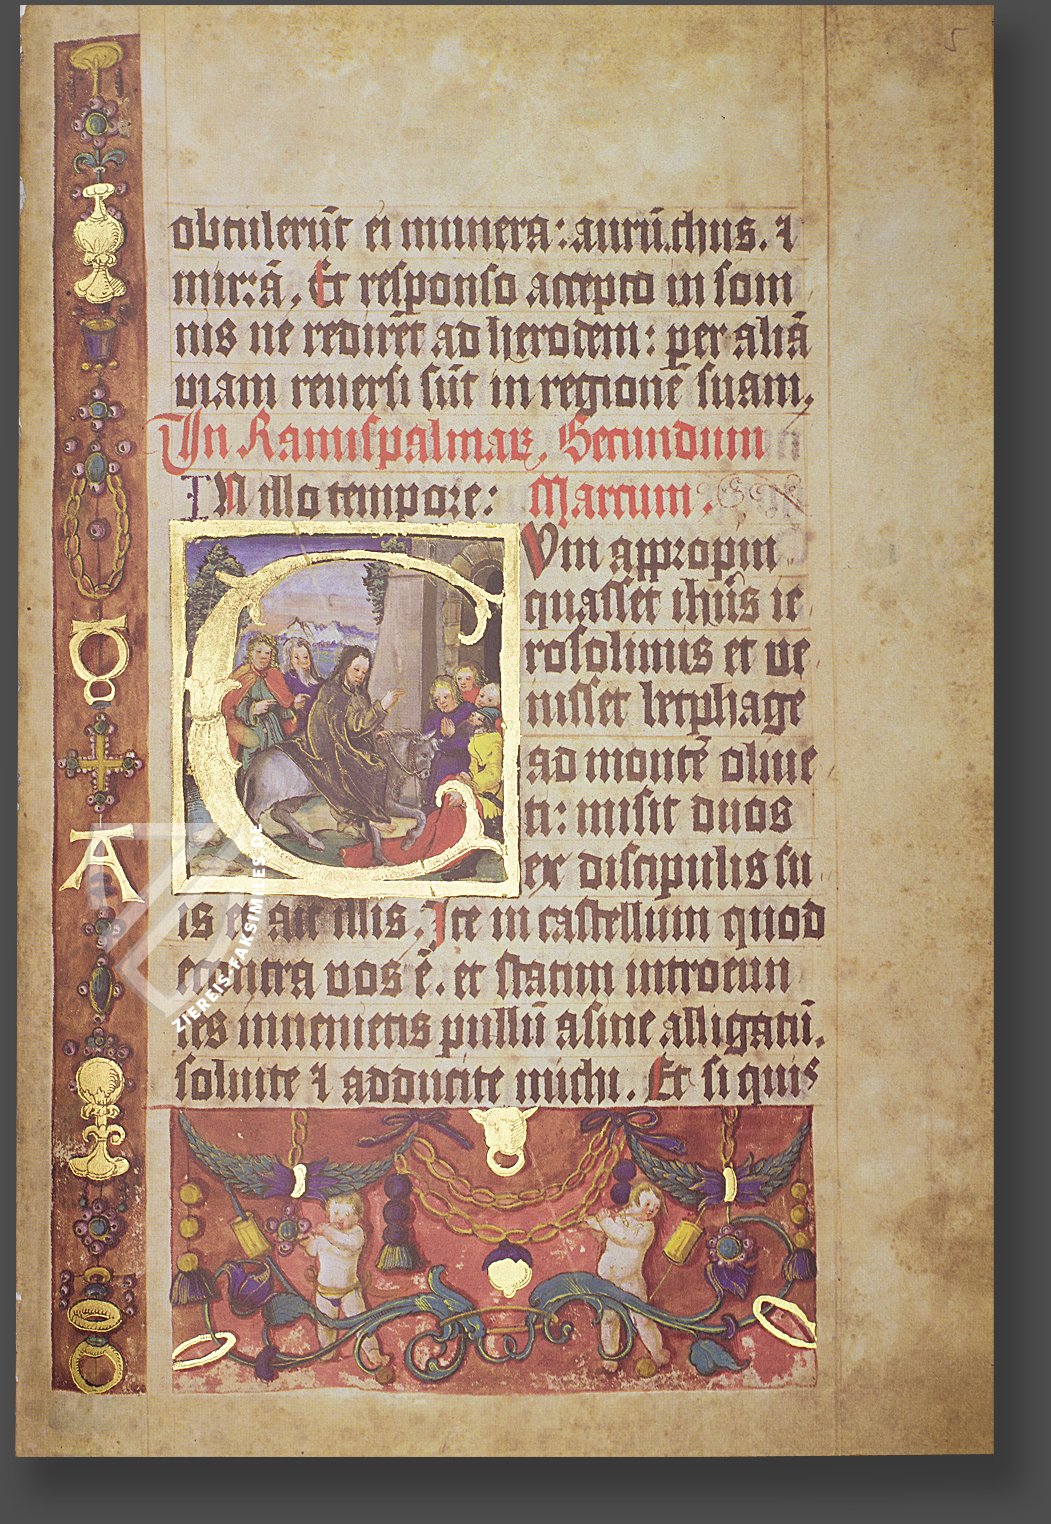 5
obtulerūt ei munera: aurū. thus. ⁊
mirrā. Et responso accepto in som
nis ne redirēt ad herodem: per aliā
uiam reuersi sūt in regionē suam.
In Ramispalmaꝝ. Secundum
IN illo tempore: Marcum.
Vm appropin
quasset ihūs ie
rosolimis et ue
nisset betphage
ad montē oliue
ti: misit duos
ex discipulis su
is et ait illis. Ite in castellum quod
contra uos ē. et statim introeun
tes inuenietis pullū asine alligatū.
soluite ⁊ adducite michi. Et si quis
ZIEREIS-FAKSIMILES.DE